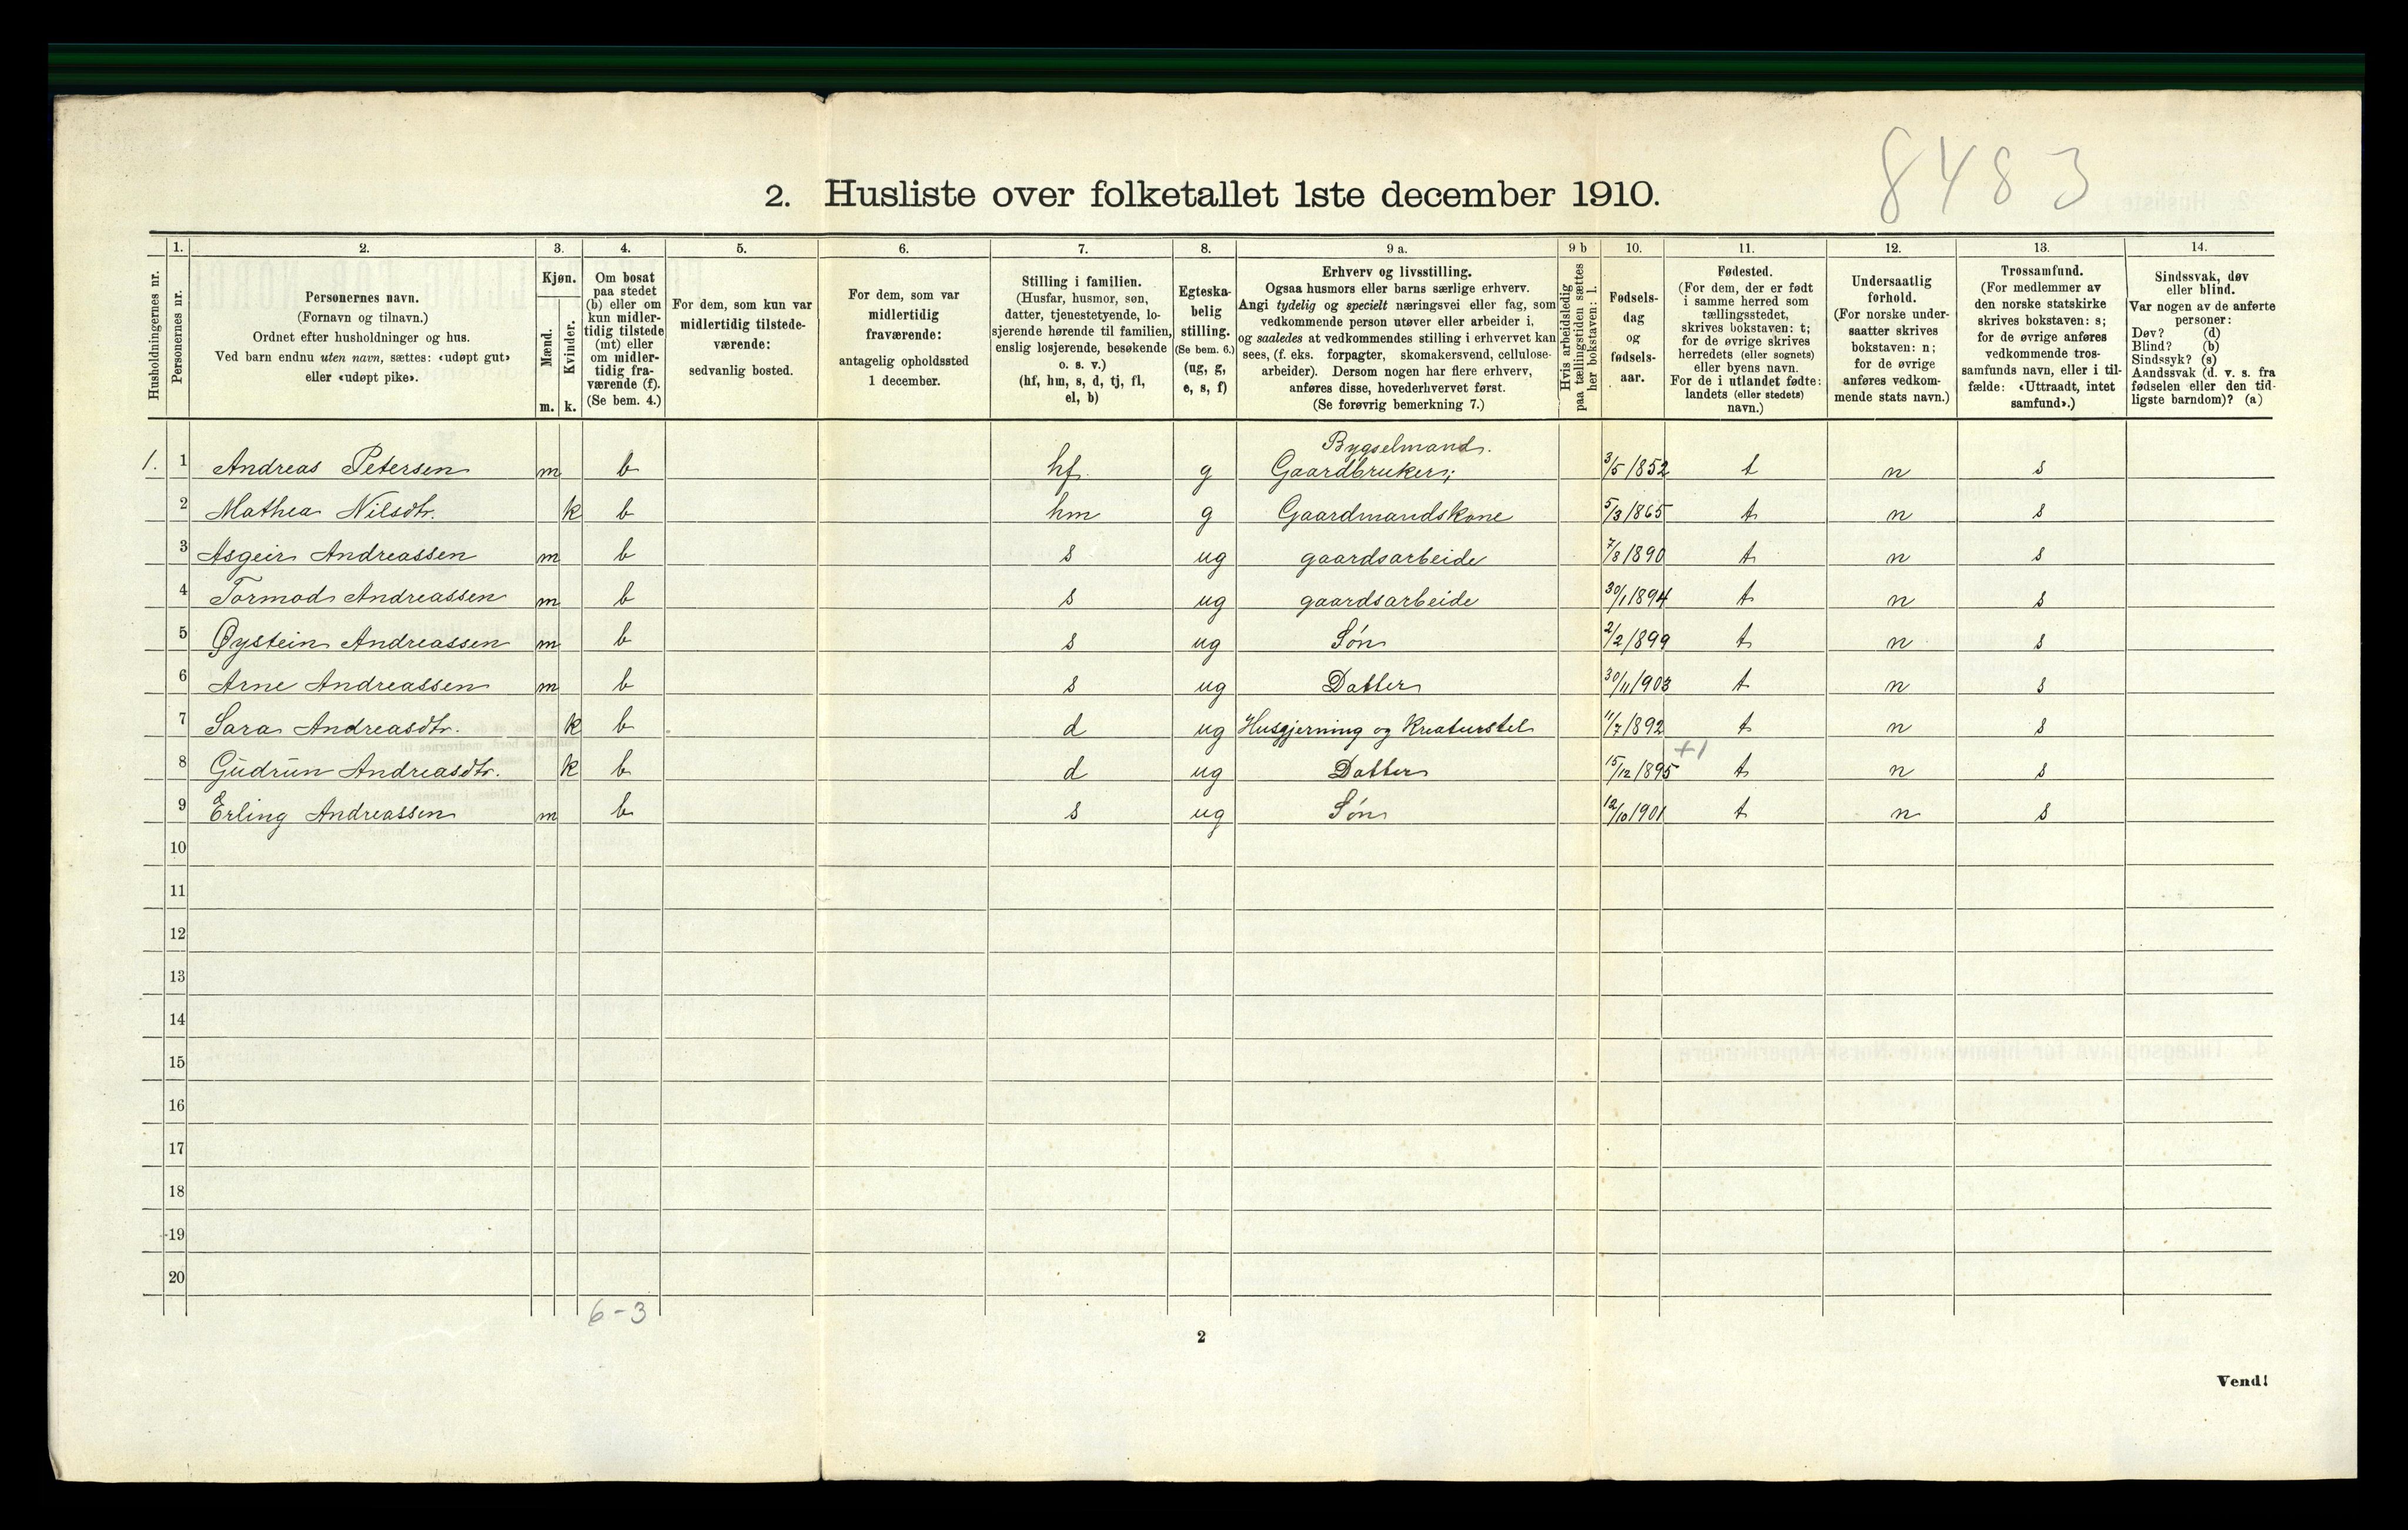 8483
2. Husliste over folketallet 1ste december 1910.
Husholdningernes nr.
1. Personernes nr.
2. Personernes navn.
(Fornavn og tilnavn.)
Ordnet efter husholdninger og hus.
Ved barn endnu uten navn, sættes: «udøpt gut»
eller «udøpt pike».
3. Kjøn.
Mænd. m.
Kvinder. k.
4. Om bosat
paa stedet
(b) eller om
kun midler-
tidig tilstede
(mt) eller
om midler-
tidig fra-
værende (f).
(Se bem. 4.)
5. For dem, som kun var
midlertidig tilstede-
værende:
sedvanlig bosted.
6. For dem, som var
midlertidig
fraværende:
antagelig opholdssted
1 december.
7. Stilling i familien.
(Husfar, husmor, søn,
datter, tjenestetyende, lo-
sjerende hørende til familien,
enslig losjerende, besøkende
o. s. v.)
(hf, hm, s, d, tj, fl,
el, b)
8. Egteska-
belig
stilling.
(Se bem. 6.)
(ug, g,
e, s, f)
9 a. Erhverv og livsstilling.
Ogsaa husmors eller barns særlige erhverv.
Angi tydelig og specielt næringsvei eller fag, som
vedkommende person utøver eller arbeider i,
og saaledes at vedkommendes stilling i erhvervet kan
sees, (f. eks. forpagter, skomakersvend, cellulose-
arbeider). Dersom nogen har flere erhverv,
anføres disse, hovederhvervet først.
(Se forøvrig bemerkning 7.)
9 b Hvis arbeidsledig
paa tællingstiden sættes
her bokstaven: l.
10. Fødsels-
dag
og
fødsels-
aar.
11. Fødested.
(For dem, der er født
i samme herred som
tællingsstedet,
skrives bokstaven: t;
for de øvrige skrives
herredets (eller sognets)
eller byens navn.
For de i utlandet fødte:
landets (eller stedets)
navn.)
12. Undersaatlig
forhold.
(For norske under-
saatter skrives
bokstaven: n;
for de øvrige
anføres vedkom-
mende stats navn.)
13. Trossamfund.
(For medlemmer av
den norske statskirke
skrives bokstaven: s;
for de øvrige anføres
vedkommende tros-
samfunds navn, eller i til-
fælde: «Uttraadt, intet
samfund».)
14. Sindssvak, døv
eller blind.
Var nogen av de anførte
personer:
Døv? (d)
Blind? (b)
Sindssyk? (s)
Aandssvak (d. v. s. fra
fødselen eller den tid-
ligste barndom)? (a)
Bygselmand.
1. 1 Andreas Petersen m b hf. g Gaardbruker; 3/5 1852 t n s
2 Mathea Nilsdtr. k b hm g Gaardmandskone 5/3 1865 t n s
3 Asgeir Andreassen m b s ug gaardsarbeide 7/8 1890 t n s
4 Tormod Andreassen m b s ug gaardsarbeide 30/1 1894 t n s
5 Øystein Andreassen m b s ug Søn 2/2 1899 t n s
6 Arne Andreassen m b s ug Datter 30/11 1903 t n s
7 Sara Andreasdtr. k b d ug Husgjerning og Kreaturstel 11/7 1892 t n s
+1
8 Gudrun Andreasdtr. k b d ug Datter 15/12 1895 t n s
9 Erling Andreassen m b s ug Søn 12/10 1901 t n s
10
11
12
13
14
15
16
17
18
19
20
6-3
2
Vend!